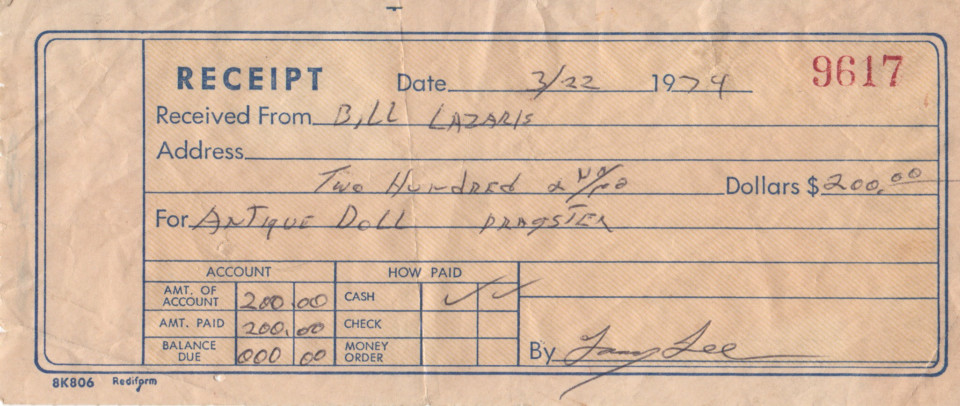 RECEIPT Date 3/22 1974 9617
Received From Bill Lazaris
Address
Two Hundred & no/00 Dollars $ 200.00
For Antique Doll Dragster
ACCOUNT HOW PAID
AMT. OF ACCOUNT 200.00 CASH ✓ ✓
AMT. PAID 200.00 CHECK
BALANCE DUE 000 00 MONEY ORDER
By Larry Lee
8K806 Rediform